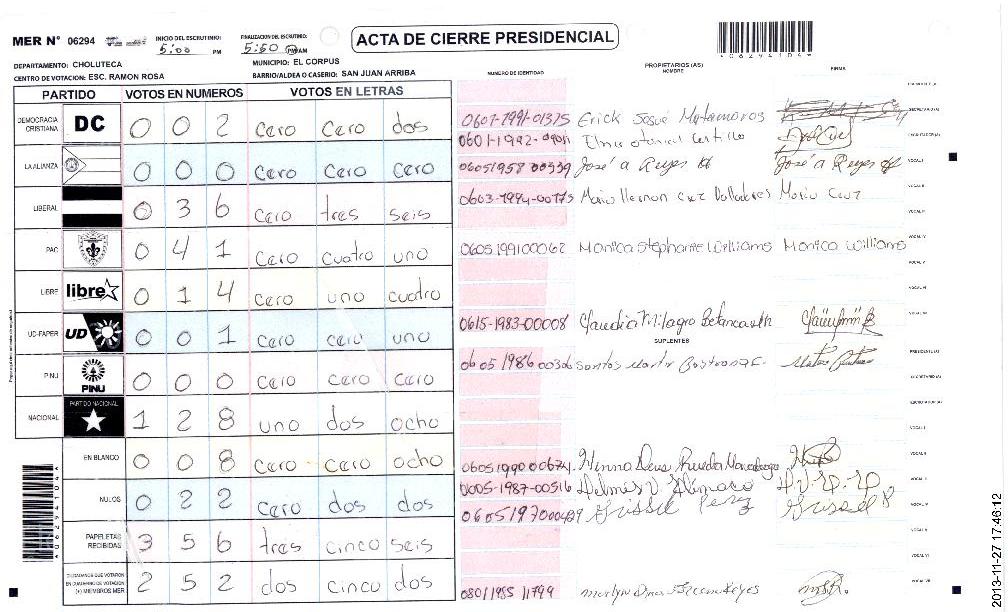 MER Nº 06294
INICIO DEL ESCRUTINIO:
5:00 PM
FINALIZACION DEL ESCRUTINIO:
5:50 PM AM
ACTA DE CIERRE PRESIDENCIAL
06294104
DEPARTAMENTO: CHOLUTECA
MUNICIPIO: EL CORPUS
CENTRO DE VOTACION: ESC. RAMON ROSA
BARRIO/ALDEA O CASERIO: SAN JUAN ARRIBA
PARTIDO VOTOS EN NUMEROS VOTOS EN LETRAS
DEMOCRACIA CRISTIANA DC 0 0 2 cero cero dos
LA ALIANZA 0 0 0 cero cero cero
LIBERAL 0 3 6 cero tres seis
PAC 0 4 1 cero cuatro uno
LIBRE libre 0 1 4 cero uno cuatro
UD-FAPER UD 0 0 1 cero cero uno
PINU PINU 0 0 0 cero cero cero
NACIONAL PARTIDO NACIONAL 1 2 8 uno dos ocho
EN BLANCO 0 0 8 cero cero ocho
NULOS 0 2 2 cero dos dos
PAPELETAS RECIBIDAS 3 5 6 tres cinco seis
CIUDADANOS QUE VOTARON EN CUADERNO DE VOTACION (+) MIEMBROS MER 2 5 2 dos cinco dos
NUMERO DE IDENTIDAD PROPIETARIOS (AS) NOMBRE FIRMA
0601-1991-01375 Erick Josue Matamoros
0601-1992-
0605195800339 José a Reyes José a Reyes
0603-1994-00775 Mario Hernan Cruz Valladares Mario Cruz
0605199100062 Monica Stephanie Williams Monica Williams
0615-1983-00008 Claudia Milagro Betancourth
SUPLENTES
0605198600306 Santos
0605199000674
0605-1987-00516 Delmis
0605197000439 Grissel Perez Grissel P
0801198511799
2013-11-27 17:46:12